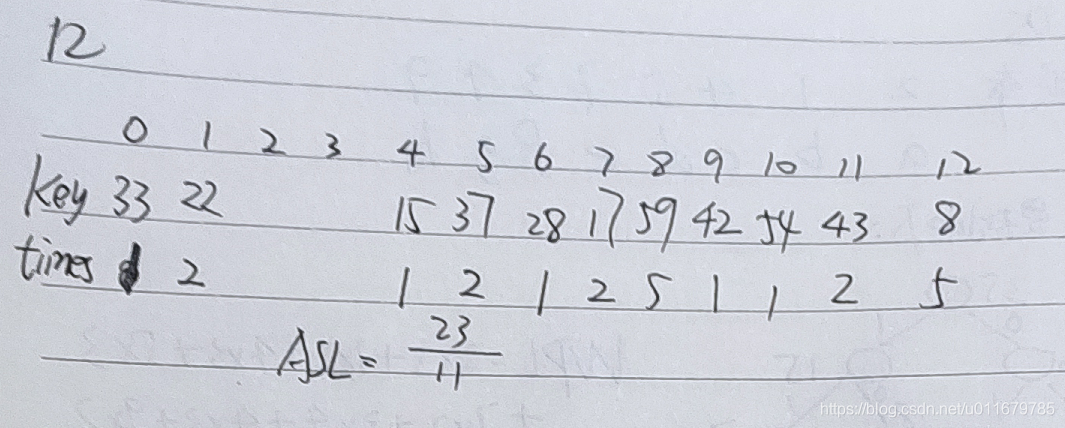 12
0 1 2 3 4 5 6 7 8 9 10 11 12
key 33 22 15 37 28 17 59 42 54 43 8
times 1 2 1 2 1 2 5 1 1 2 5
ASL = 23/11
https://blog.csdn.net/u011679785